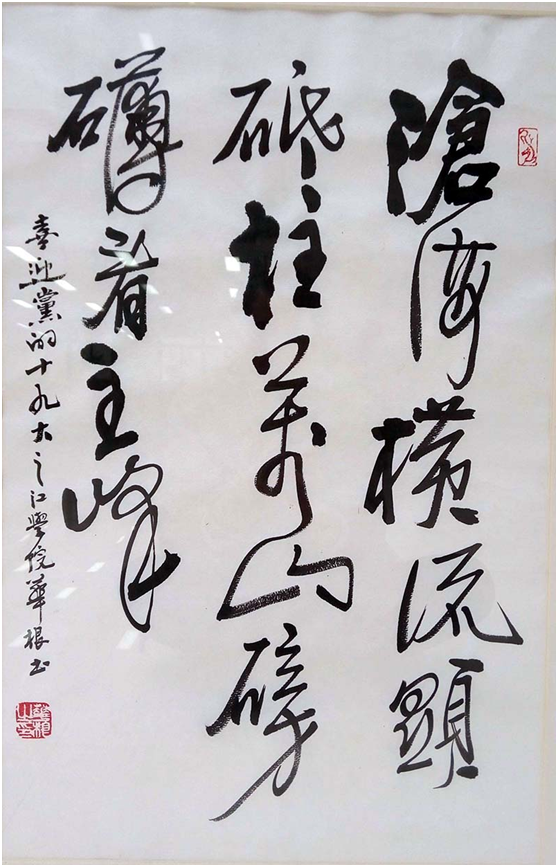 滄海橫流顯
砥柱萬山磅
礴看主峰
喜迎黨的十九大之江學院華根书